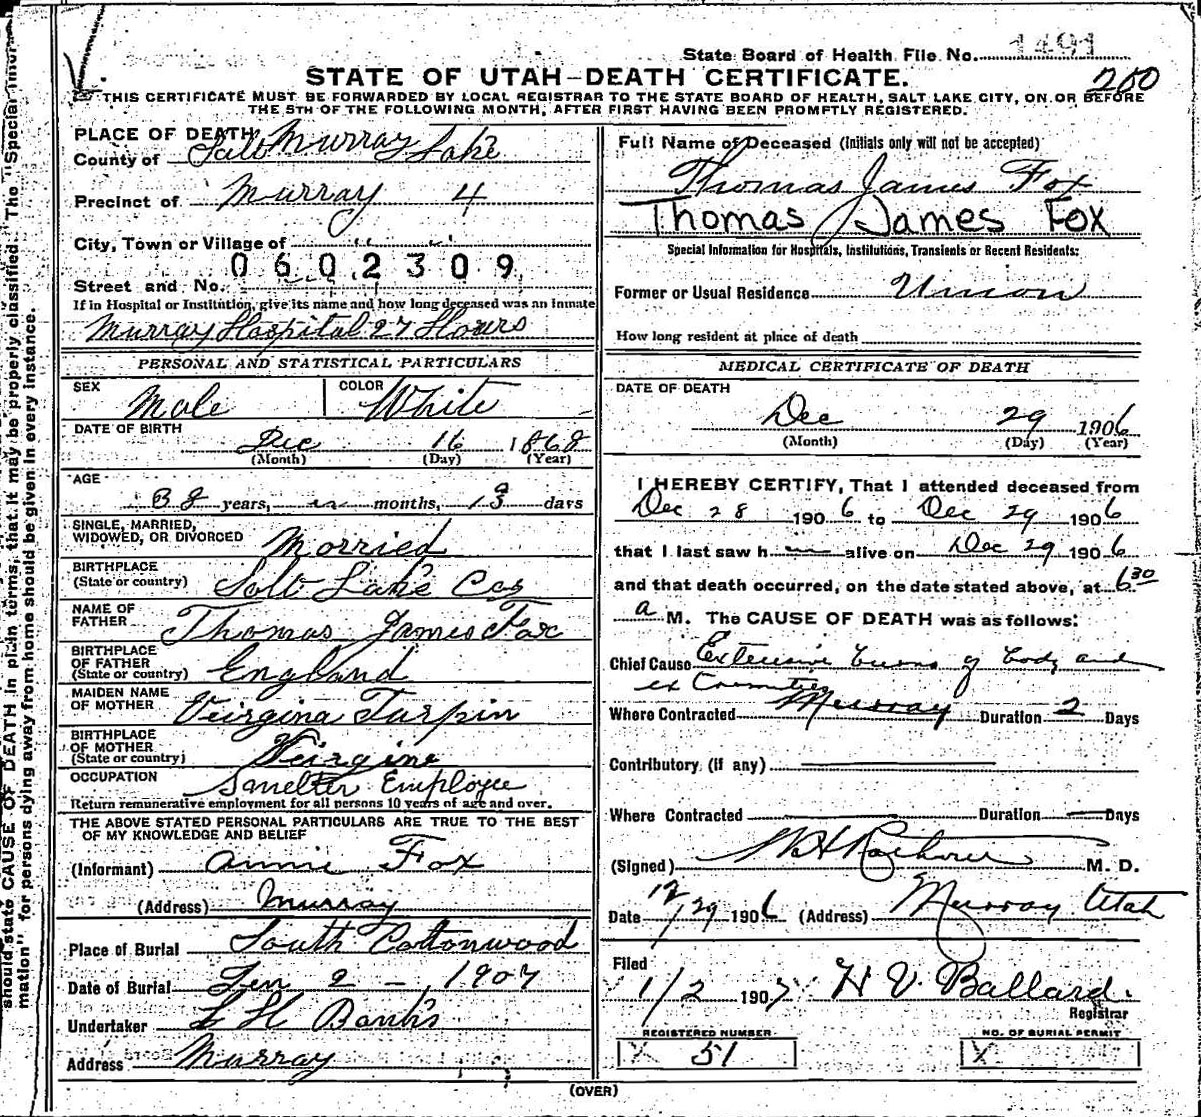 State Board of Health File No. 1491
STATE OF UTAH—DEATH CERTIFICATE.
260
THIS CERTIFICATE MUST BE FORWARDED BY LOCAL REGISTRAR TO THE STATE BOARD OF HEALTH, SALT LAKE CITY, ON OR BEFORE
THE 5TH OF THE FOLLOWING MONTH, AFTER FIRST HAVING BEEN PROMPTLY REGISTERED.
should state CAUSE OF DEATH in plain terms, that it may be properly classified. The "Special Infor-
mation" for persons dying away from home should be given in every instance.
PLACE OF DEATH Murray
County of Salt Lake
Precinct of Murray 4
City, Town or Village of " "
0602309
Street and No.
If in Hospital or Institution, give its name and how long deceased was an inmate
Murray Hospital 27 Hours
PERSONAL AND STATISTICAL PARTICULARS
SEX Male COLOR White
DATE OF BIRTH
Dec 16 1868
(Month) (Day) (Year)
AGE
38 years, months, 13 days
SINGLE, MARRIED,
WIDOWED, OR DIVORCED Married
BIRTHPLACE
(State or country) Salt Lake Co
NAME OF
FATHER Thomas James Fox
BIRTHPLACE
OF FATHER
(State or country) England
MAIDEN NAME
OF MOTHER Veirgina Turpin
BIRTHPLACE
OF MOTHER
(State or country) Veirgine
OCCUPATION Smelter Employee
Return remunerative employment for all persons 10 years of age and over.
THE ABOVE STATED PERSONAL PARTICULARS ARE TRUE TO THE BEST
OF MY KNOWLEDGE AND BELIEF
(Informant) Annie Fox
(Address) Murray
Place of Burial South Cottonwood
Date of Burial Jan 2 - 1907
Undertaker Banks
Address Murray
Full Name of Deceased (Initials only will not be accepted)
Thomas James Fox
Thomas James Fox
Special Information for Hospitals, Institutions, Transients or Recent Residents:
Former or Usual Residence Union
How long resident at place of death
MEDICAL CERTIFICATE OF DEATH
DATE OF DEATH
Dec 29 1906
(Month) (Day) (Year)
I HEREBY CERTIFY, That I attended deceased from
Dec 28 1906 to Dec 29 1906
that I last saw h alive on Dec 29 1906
and that death occurred, on the date stated above, at 6 30
a M. The CAUSE OF DEATH was as follows:
Chief Cause Extensive burns of body and
extremities
Where Contracted Murray Duration 2 Days
Contributory (if any)
Where Contracted Duration Days
(Signed) M. D.
Date 12/29 1906 (Address) Murray Utah
Filed
1/2 1907 H V. Ballard.
Registrar
REGISTERED NUMBER
X 51
NO. OF BURIAL PERMIT
X
(OVER)